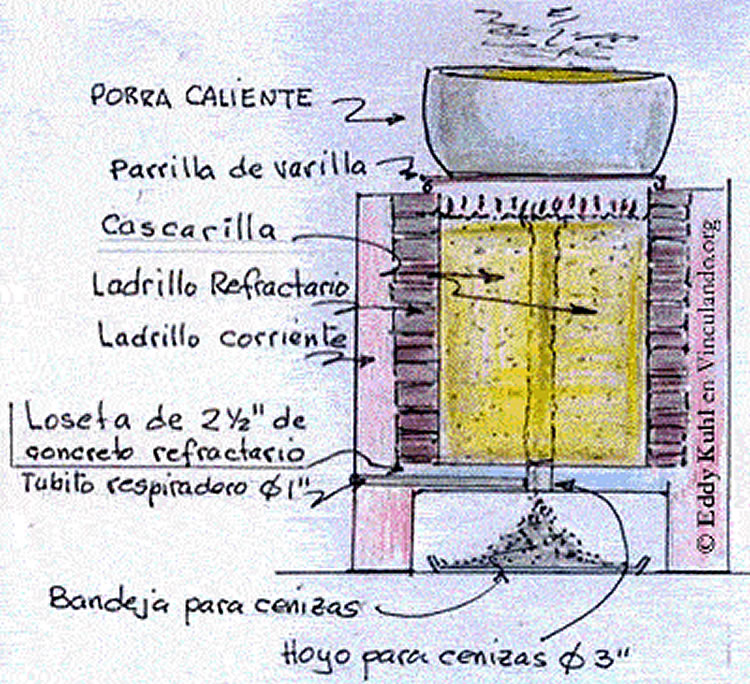 PORRA CALIENTE
Parrilla de varilla
Cascarilla
Ladrillo Refractario
Ladrillo corriente
Loseta de 2½" de
concreto refractario
Tubito respiradero Ø1"
Bandeja para cenizas
Hoyo para cenizas Ø 3"
© Eddy Kuhl en Vinculando.org